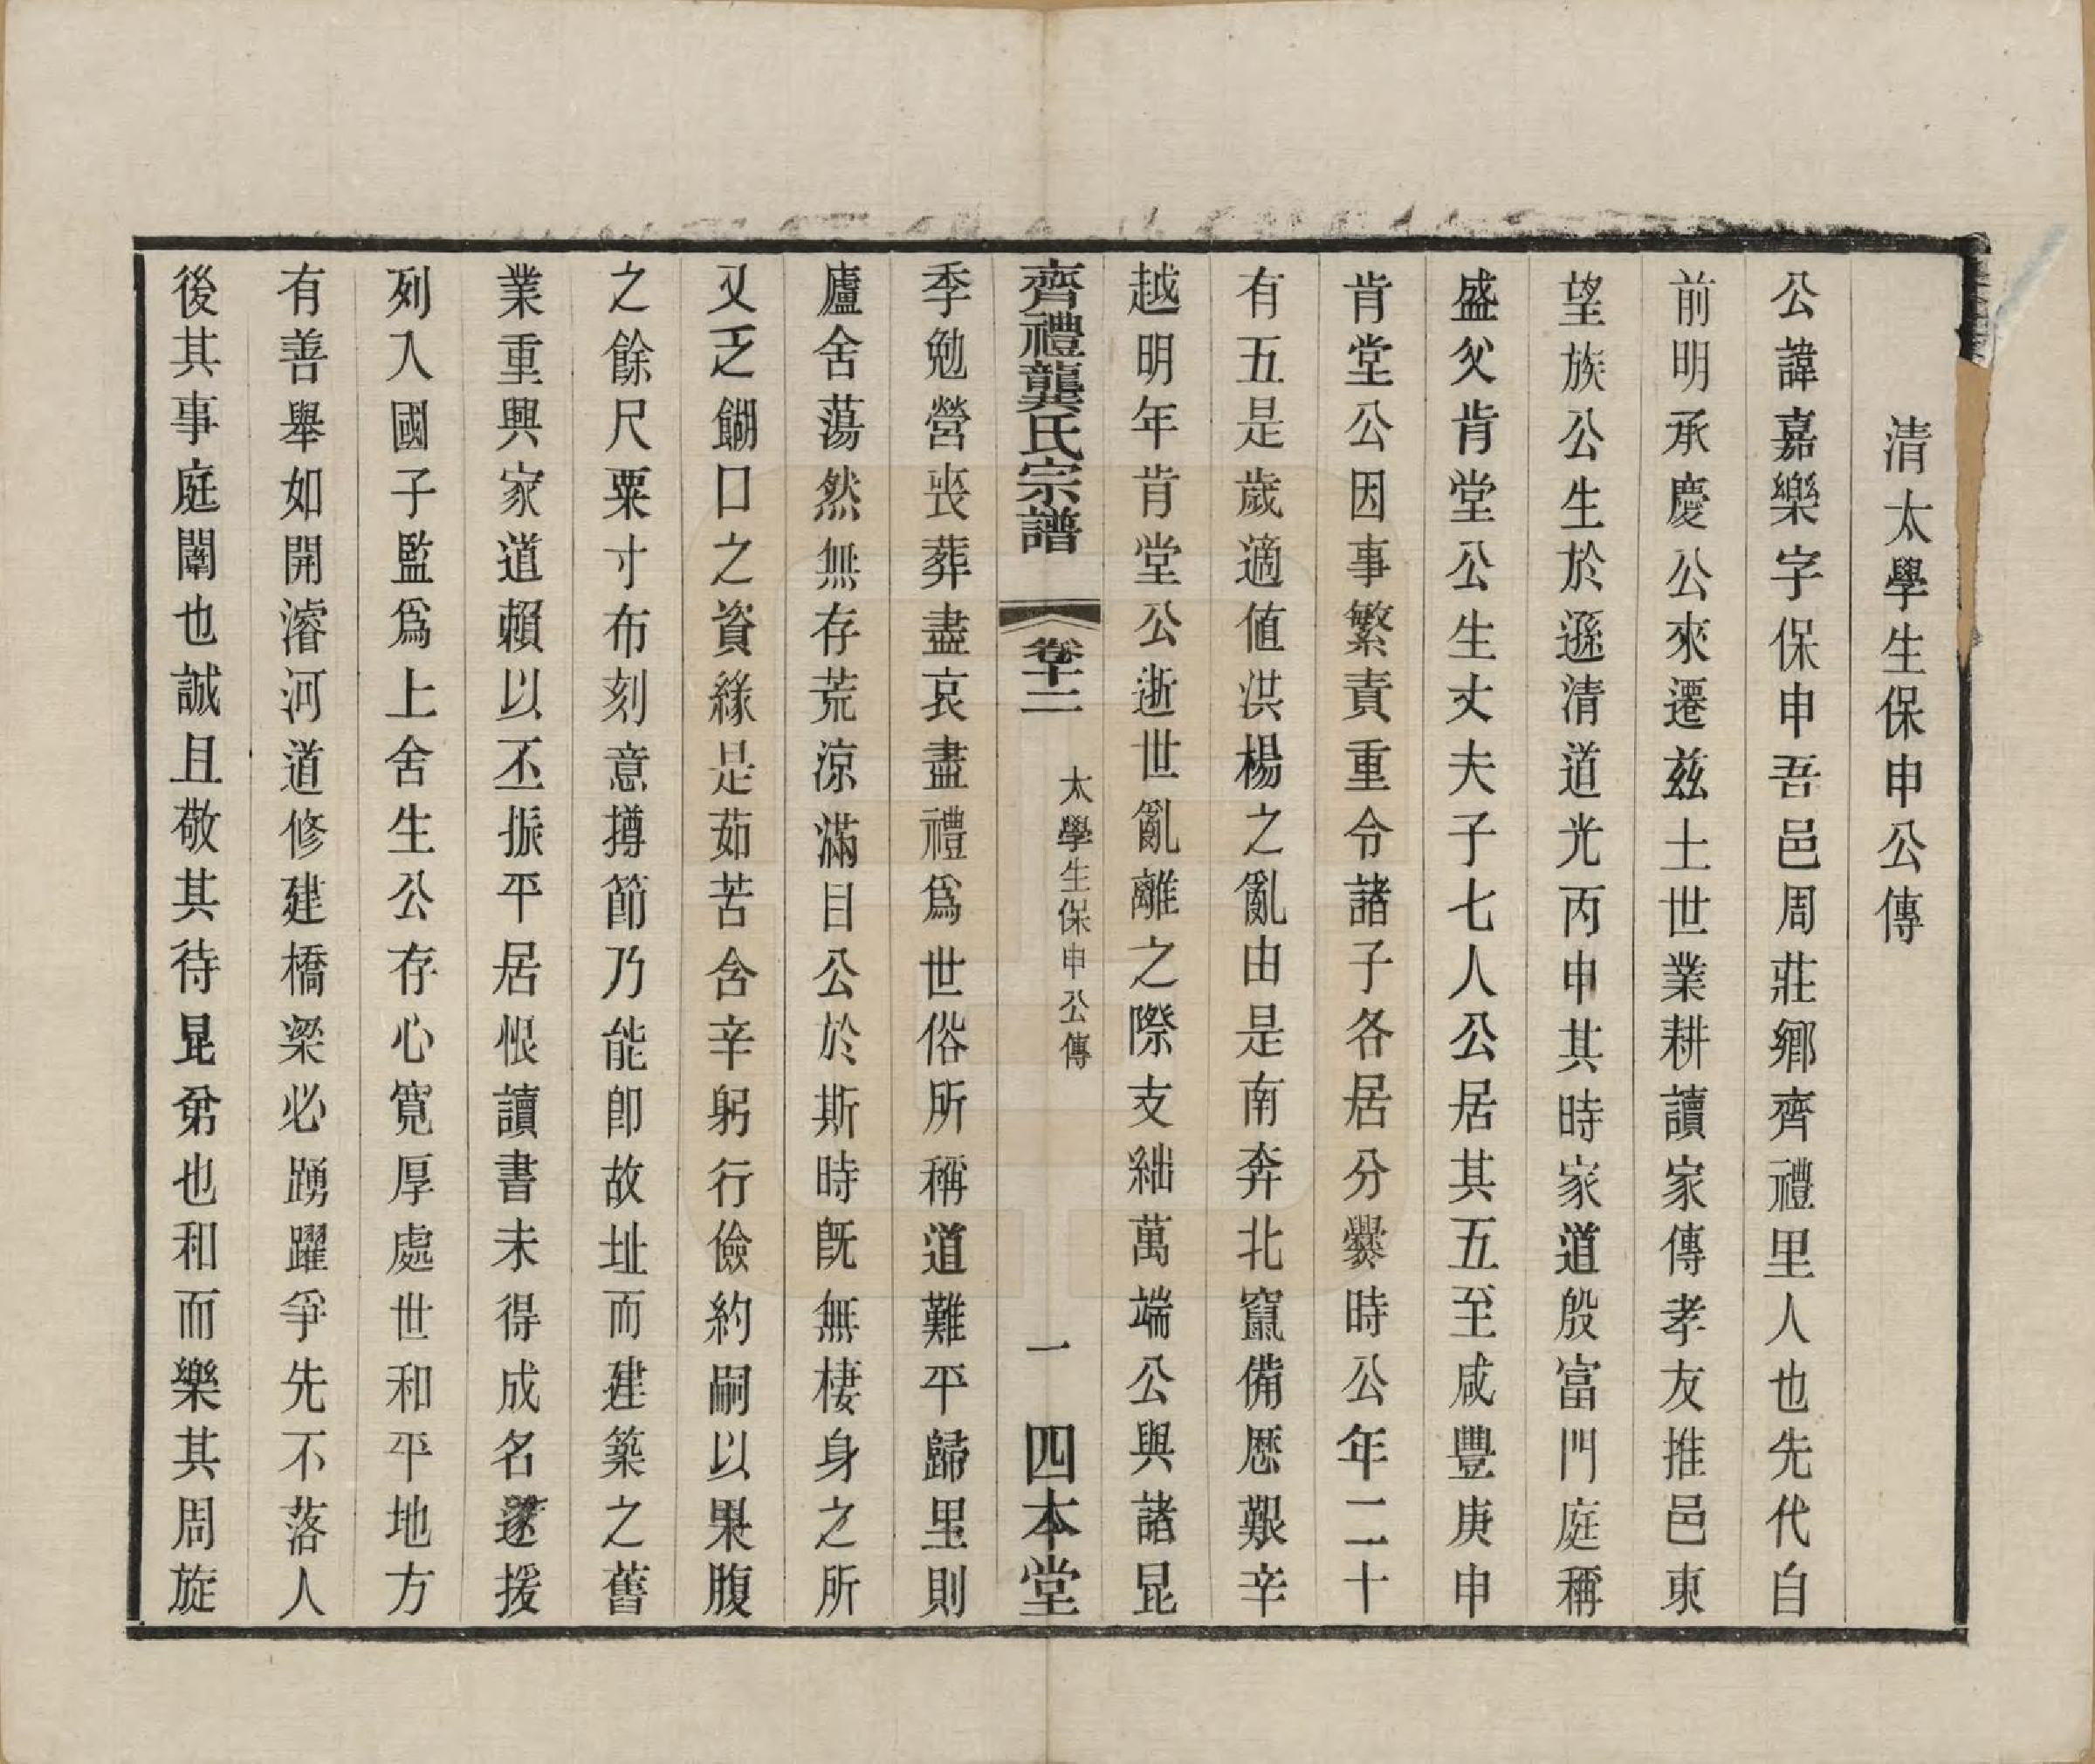 清太學生保申公傳
公諱嘉樂字保申吾邑周莊鄉齊禮里人也先代自
前明承慶公來遷兹土世業耕讀家傳孝友推邑東
望族公生於遜清道光丙申其時家道殷富門庭稱
盛父肯堂公生丈夫子七人公居其五至咸豐庚申
肯堂公因事繁責重令諸子各居分爨時公年二十
有五是歲適值洪楊之亂由是南奔北竄備歷艱辛
越明年肯堂公逝世亂離之際支絀萬端公與諸昆
齊禮龔氏宗譜
卷十二
太學生保申公傳
一
四本堂
季勉營喪葬盡哀盡禮爲世俗所稱道難平歸里則
廬舍蕩然無存荒凉滿目公於斯時既無棲身之所
又乏餬口之資緣是茹苦含辛躬行儉約嗣以果腹
之餘尺粟寸布刻意撙節乃能卽故址而建築之舊
業重興家道賴以丕振平居恨讀書未得成名遂援
列入國子監爲上舍生公存心寬厚處世和平地方
有善舉如開濬河道修建橋梁必踴躍爭先不落人
後其事庭闈也誠且敬其待昆弟也和而樂其周旋